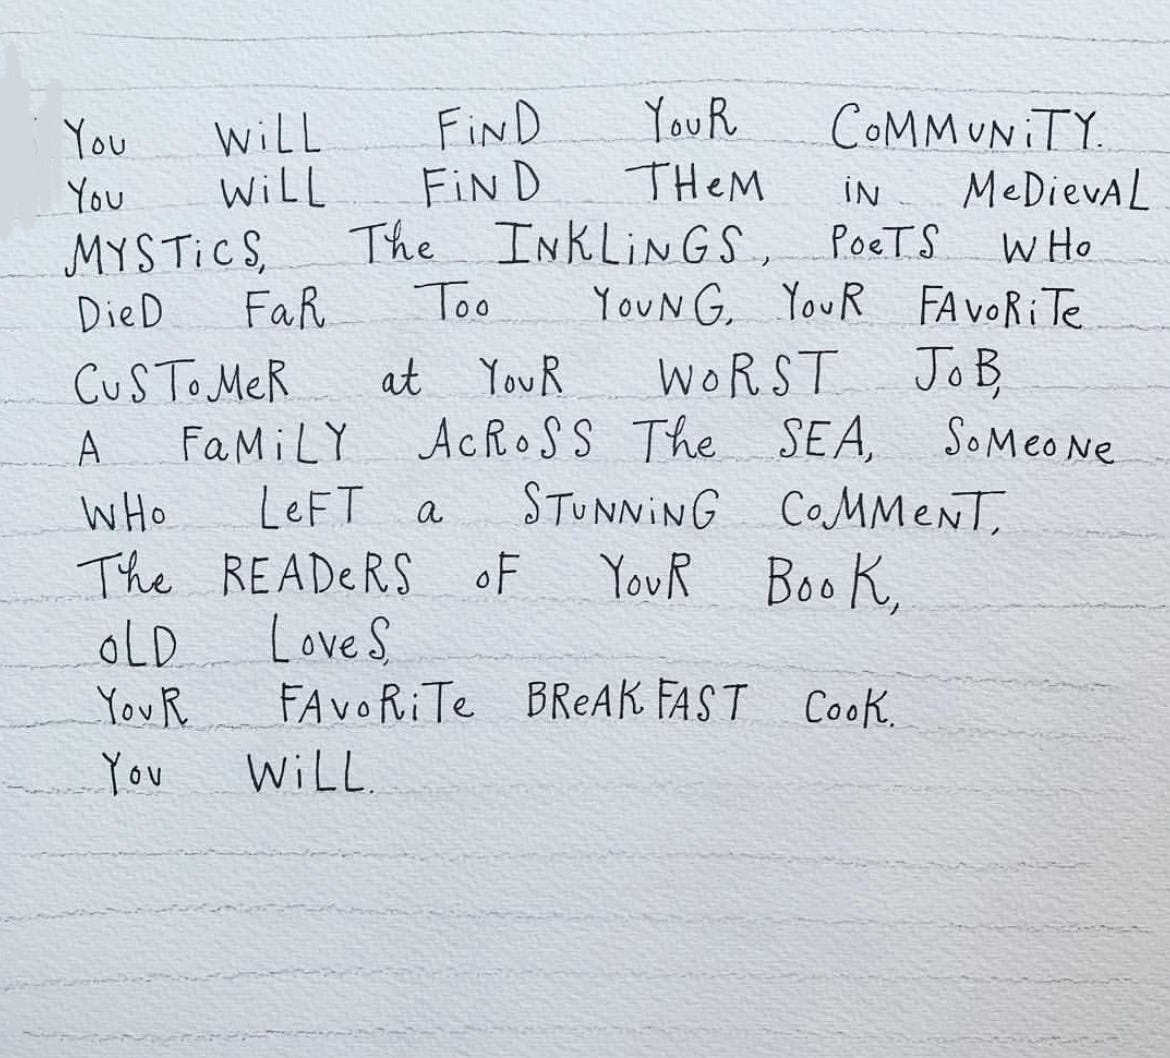 You WiLL FiND YouR CoMMUNiTY.
You WiLL FiND THeM iN MeDievAL
MYSTiCS, The INKLiNGS, PoeTS WHo
DieD FaR Too YouNG, YouR FAvoRiTe
CuSToMeR at YouR WoRST JoB,
A FaMiLY AcRoSS The SEA, SoMeoNe
WHo LeFT a STuNNiNG CoMMeNT,
The READeRS oF YouR BooK,
oLD LoveS,
YouR FAvoRiTe BReAKFAST CooK.
You WiLL.